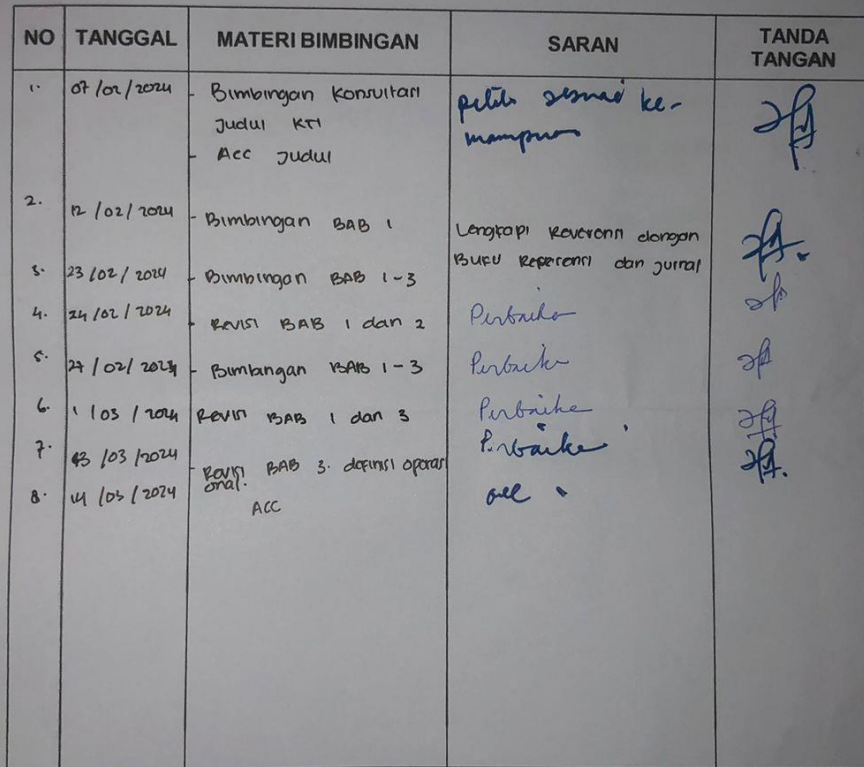 NO TANGGAL MATERI BIMBINGAN SARAN TANDA TANGAN
1. 07/02/2024 - Bimbingan Konsultasi pilih sesuai ke-
Judul KTI mampuan
- Acc Judul
2. 12/02/2024 - Bimbingan BAB 1 Lengkapi Reverensi dengan
Buku Reperensi dan jurnal
3. 23/02/2024 - Bimbingan BAB 1-3
4. 24/02/2024 - Revisi BAB 1 dan 2 Perbaiki
5. 27/02/2024 - Bimbangan BAB 1-3 Perbaiki
6. 1/03/2024 Revisi BAB 1 dan 3 Perbaiki
7. 13/03/2024 - Revisi BAB 3. definisi operasi Perbaiki
onal.
8. 14/03/2024 ACC acc